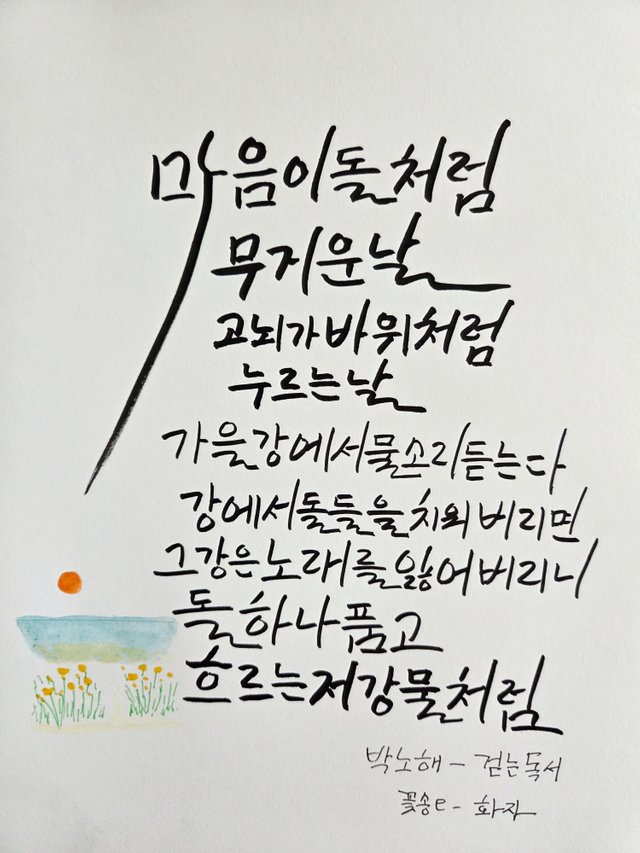 마음이 돌처럼
무지운 날
고뇌가 바위처럼
누르는 날
가을 강에서 물소리 듣는다
강에서 돌들을 치워 버리면
그 강은 노래를 잃어버리니
돌 하나 품고
흐르는 저 강물처럼
박노해 - 걷는 독서
꽃송e - 화자